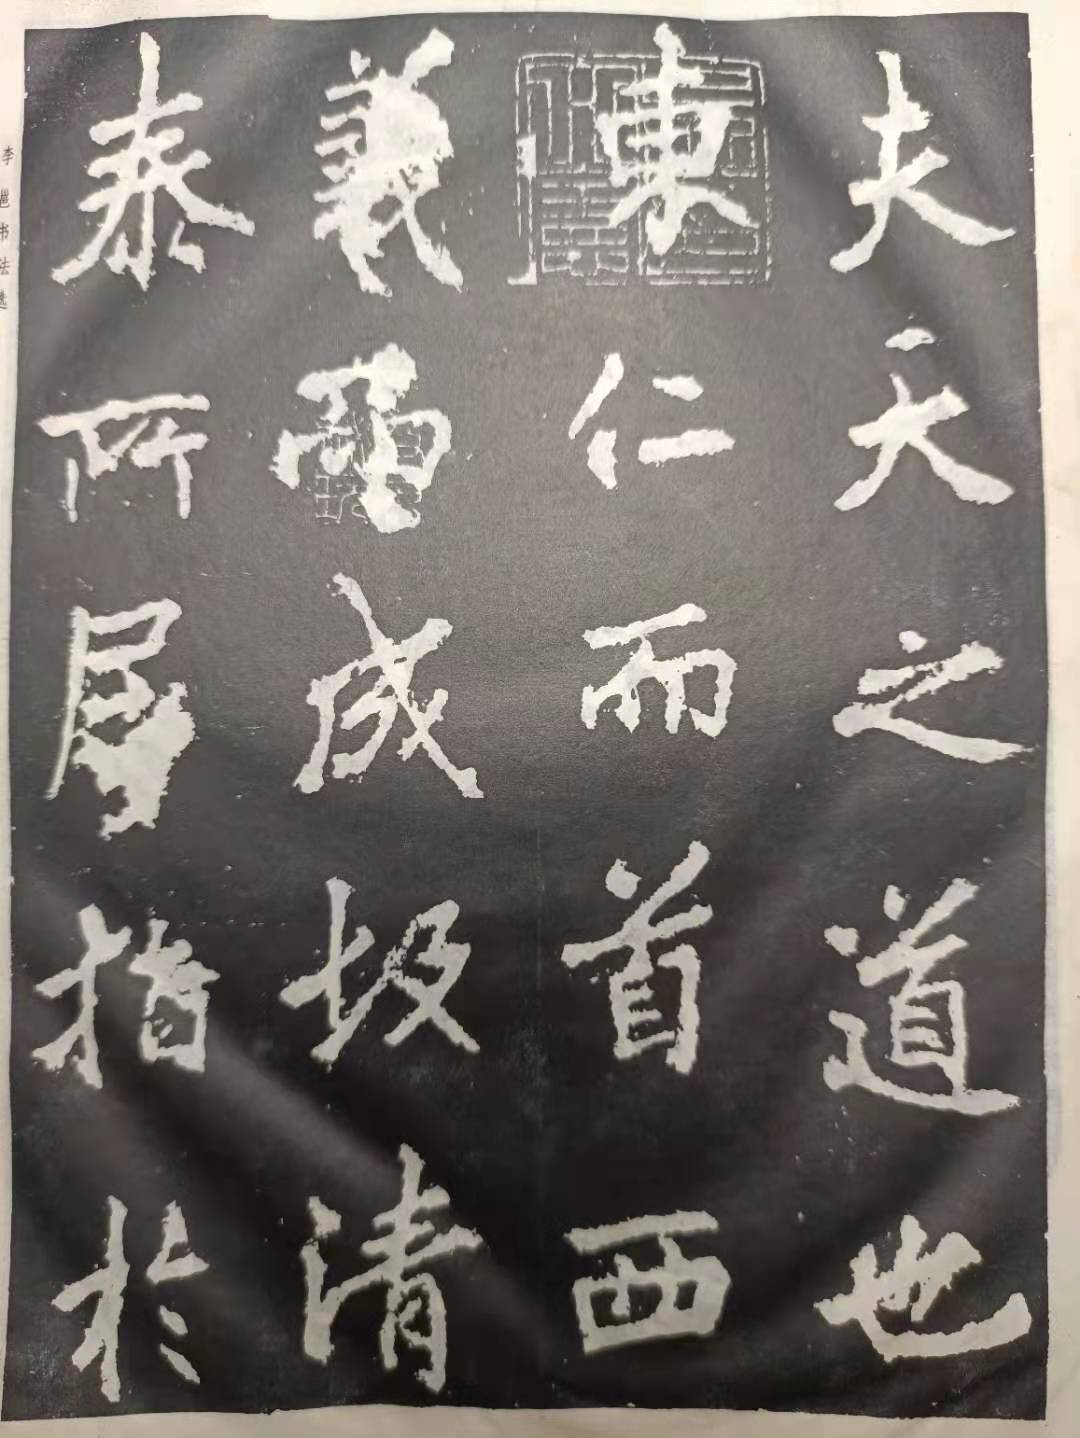 夫天之道也
東仁而首西
義而成故清
泰所居指於
李邕书法选